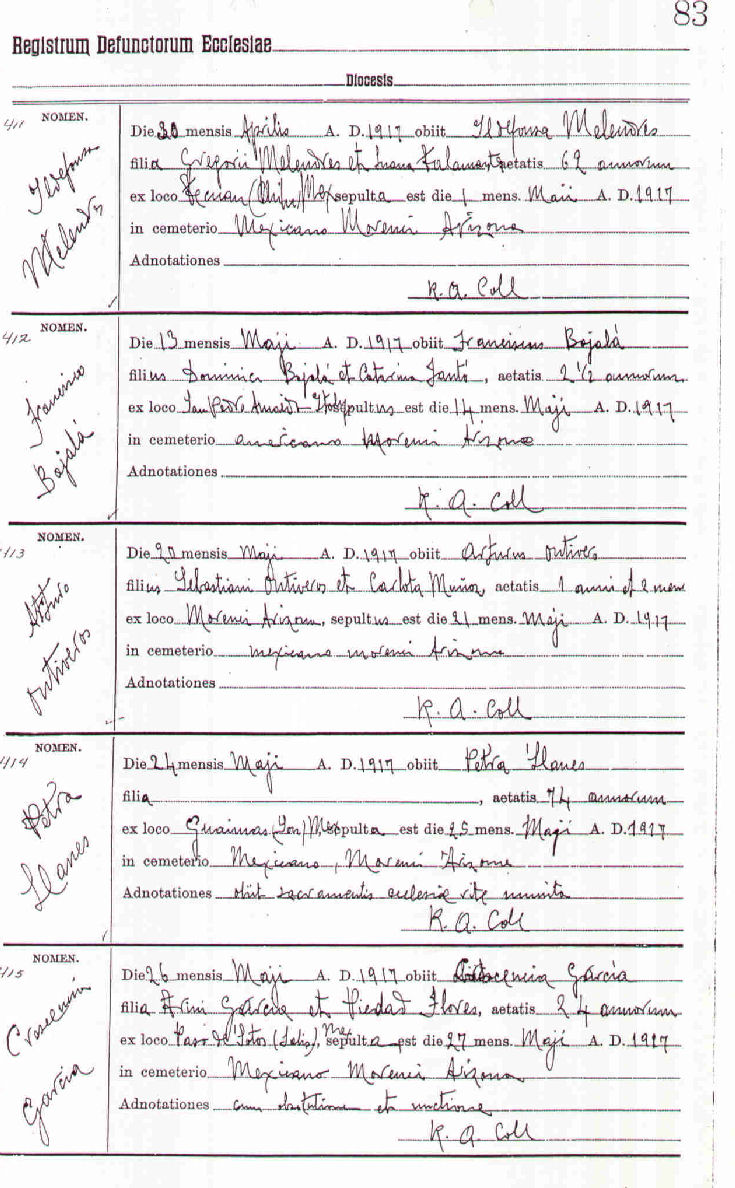 83
Registrum Defunctorum Ecclesiae
Diocesis
411 NOMEN.
Ildefonsa
Melendres
Die 30 mensis Aprilis A. D. 1917 obiit Ildefonsa Melendres
filia Gregorii Melendres et Juana aetatis 69 annorum
ex loco (Chih.) Mex sepulta est die 1 mens. Maii A. D. 1917
in cemeterio Mexicano Morenci Arizona
Adnotationes
R. A. Coll
412 NOMEN.
Francisco
Bojalá
Die 13 mensis Maji A. D. 1917 obiit Franciscus Bojalá
filius Dominici Bojalá et Catarina Santó, aetatis 2 1/2 annorum
ex loco San Pedro sepultus est die 14 mens. Maji A. D. 1917
in cemeterio americano Morenci Arizona
Adnotationes
R. A. Coll
413 NOMEN.
Ontiveros
Die 20 mensis Maji A. D. 1917 obiit Arturus Ontiveros
filius Sebastiani Ontiveros et Carlota Muñoz, aetatis 1 anni et 2 mens
ex loco Morenci Arizona, sepultus est die 21 mens. Maji A. D. 1917
in cemeterio mexicano morenci Arizona
Adnotationes
R. A. Coll
414 NOMEN.
Petra
Llanes
Die 24 mensis Maji A. D. 1917 obiit Petra Llanes
filia , aetatis 74 annorum
ex loco Guaimas (Son) Mex sepulta est die 25 mens. Maji A. D. 1917
in cemeterio Mexicano, Morenci Arizona
Adnotationes obiit sacramentis ecclesiae rite munita
R. A. Coll
415 NOMEN.
Cresencia
García
Die 26 mensis Maji A. D. 1917 obiit García
filia García et Piedad Flores, aetatis 24 annorum
ex loco Paso de Sotos (Jalis), Mex sepulta est die 27 mens. Maji A. D. 1917
in cemeterio Mexicano Morenci Arizona
Adnotationes cum absolutione et unctione
R. A. Coll